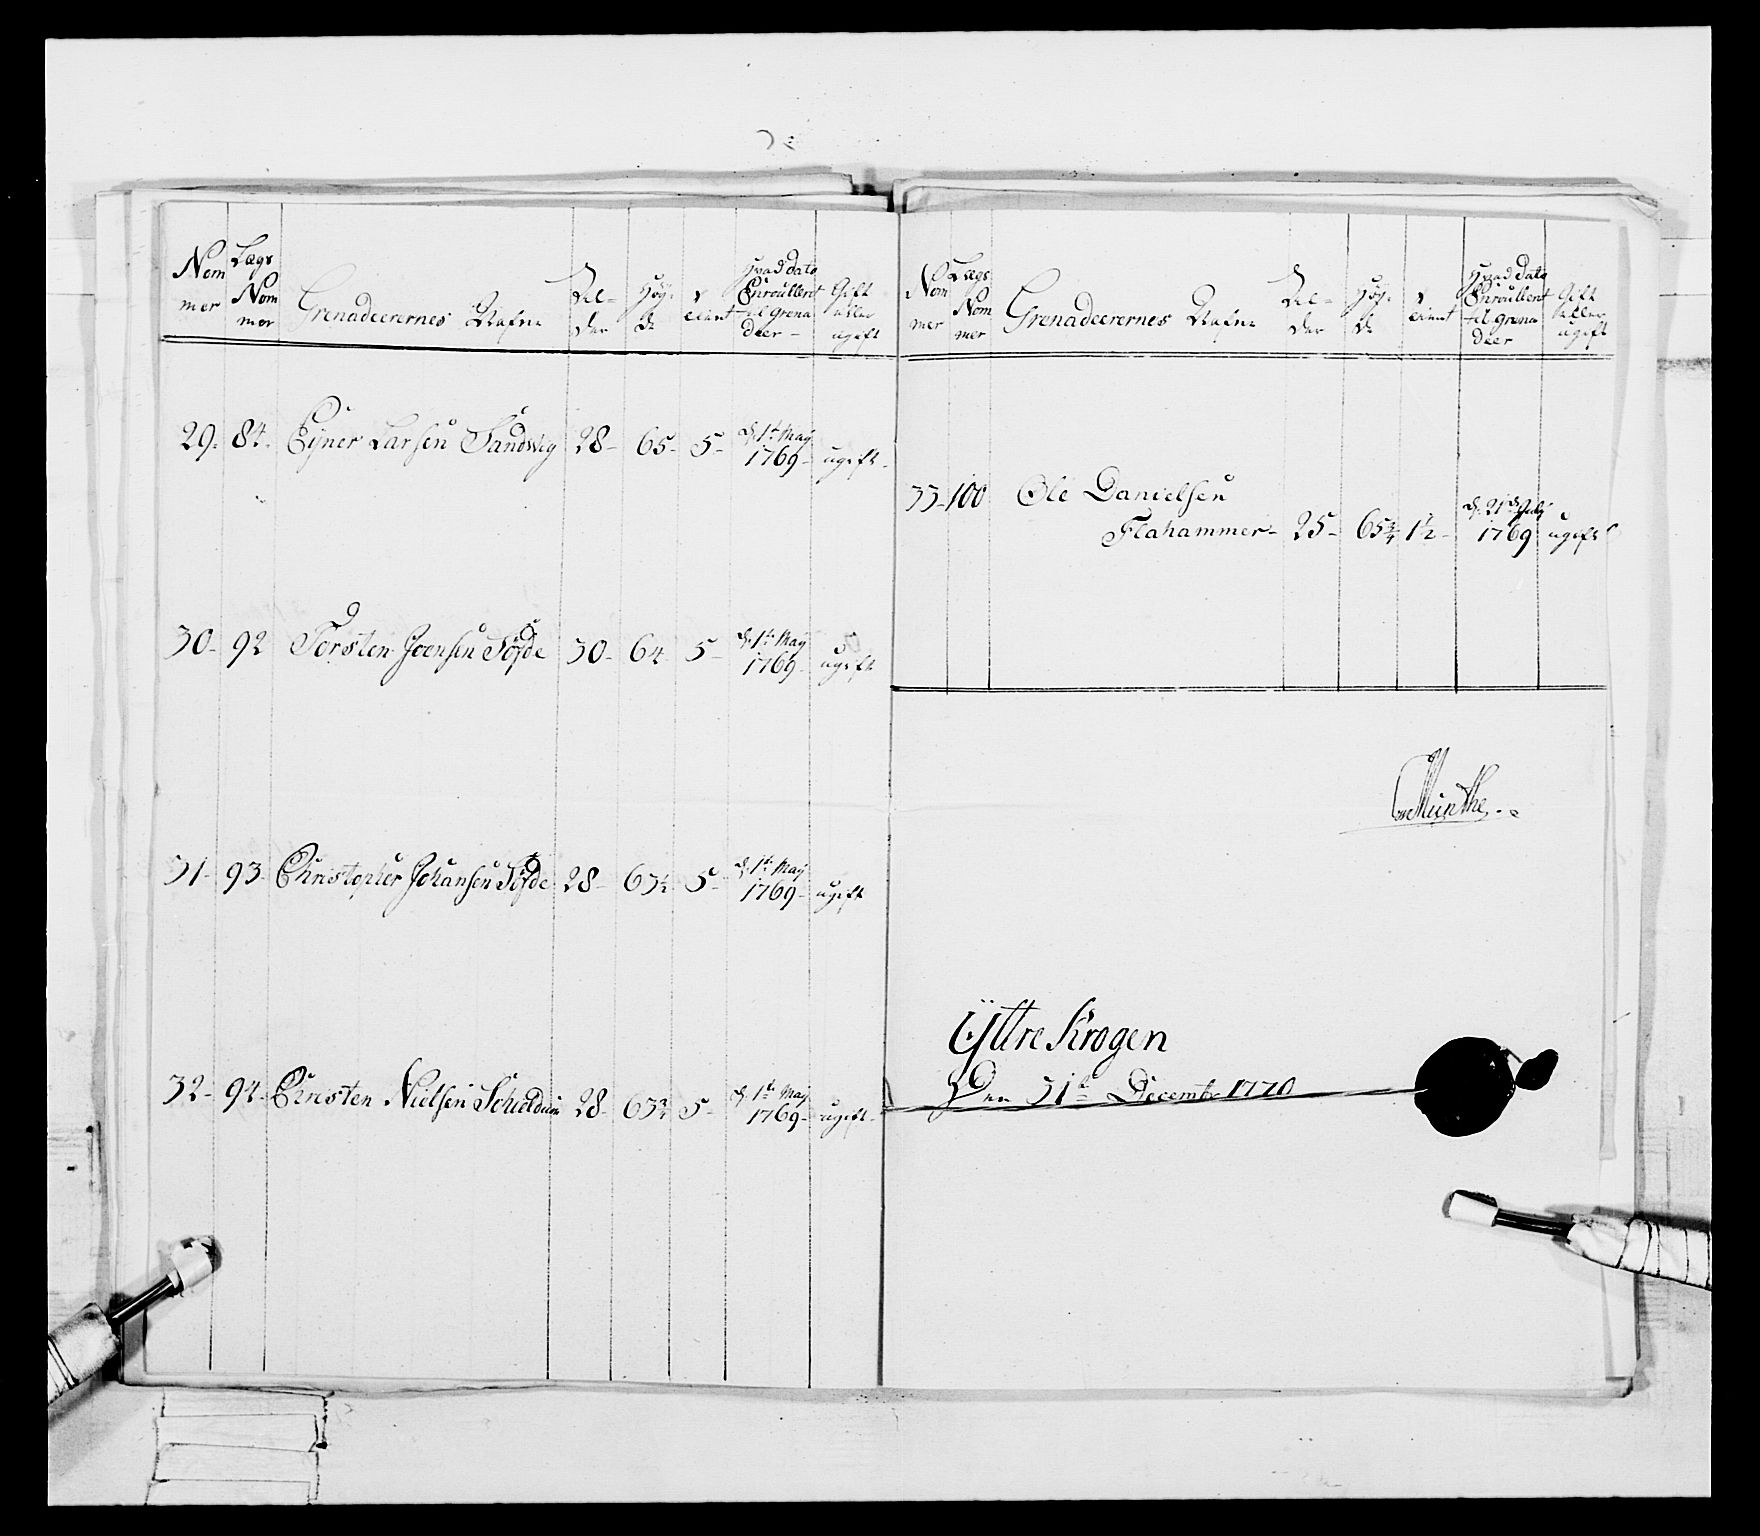 Nom
mer
Lægs
Nom
mer
Grenadeerernes Nafne
Ael-
der
Høy-
de
tient
Hvad dato
Enroullert
til Grena
deer-
Gift
eller
ugift
29. 84. Ejner Larsen Sandwig 28- 65- 5- d. 1te May
1769- ugift-
30- 92 Torsten Joensen Söfde 30- 64 5- d. 1te May
1769- ugift
31- 93- Christopher Johansen Söfde 28- 63½ 5- d. 1te May
1769- ugift
32- 94- Christen Nielsen 28- 63¾ 5- d. 1te May
1769- ugift-
Nom
mer
Lægs
Nom
mer
Grenadeerernes Nafne
Ael-
der
Høy-
de
tient
Hvad dato
Enroullert
til Grena
deer
Gift
eller
ugift
33- 100 Ole Danielsen
Flahammer- 25- 65¾ 1½- d. 21de July
1769 ugift
Munthe
Ÿttre Krogen
Den 31te Decembr 1770